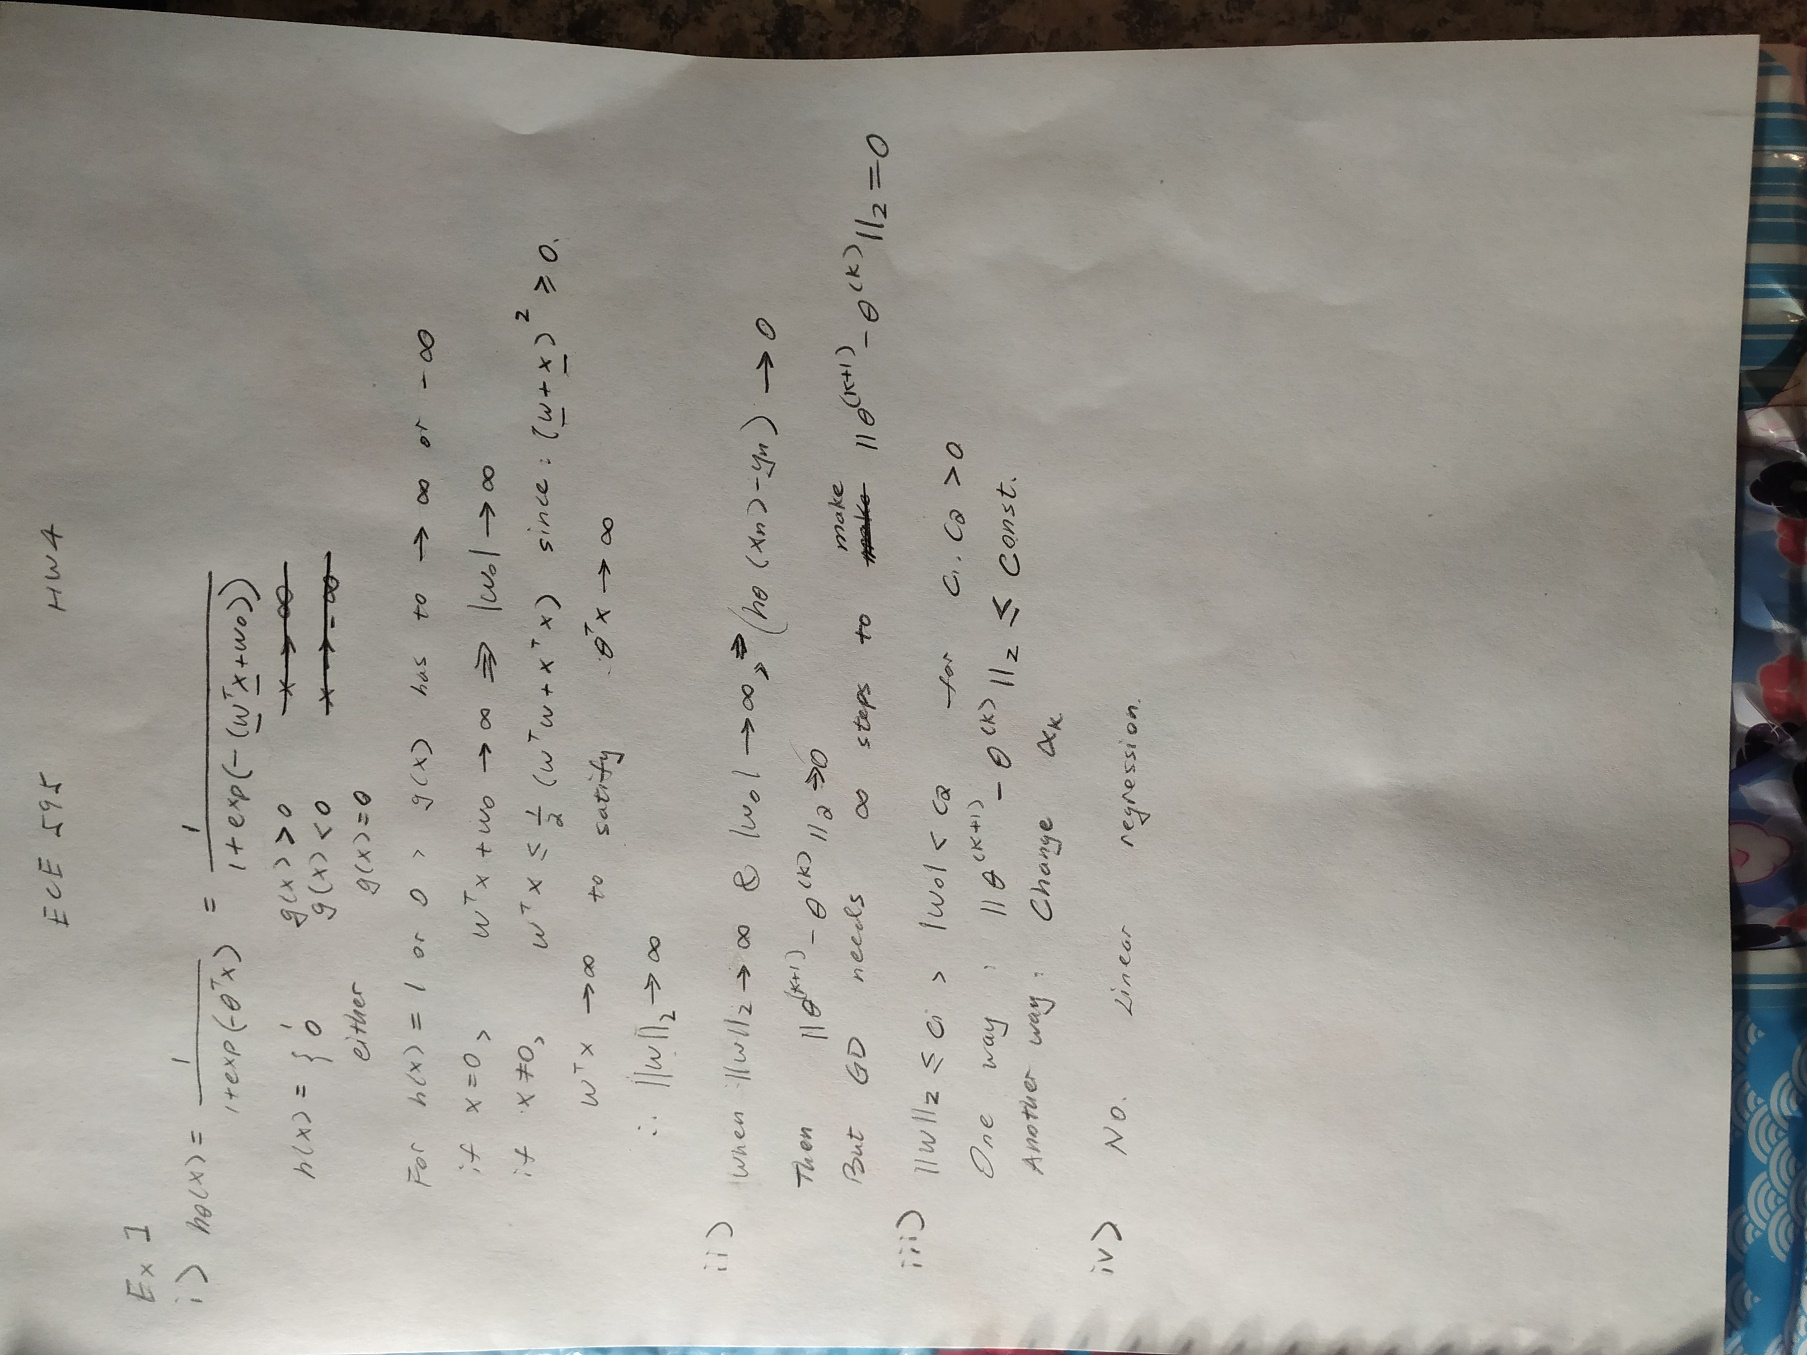 ECE 595 HW4
Ex 1
i) hθ(x) = 1/(1+exp(-θᵀx)) = 1/(1+exp(-(wᵀx+w₀)))
h(x) = { 1 g(x) > 0 x → ∞
0 g(x) < 0 x → -∞
either g(x) = 0
For h(x) = 1 or 0, g(x) has to → ∞ or -∞
if x=0, wᵀx + w₀ → ∞ ⇒ |w₀| → ∞
if x≠0, wᵀx ≤ ½ (wᵀw + xᵀx) since: (w+x)² ≥ 0.
wᵀx → ∞ to satify θᵀx → ∞
∴ ||w||₂ → ∞
ii) When ||w||₂ → ∞ & |w₀| → ∞, ⇒ (hθ(xₙ) - yₙ) → 0
Then ||θ⁽ᵏ⁺¹⁾ - θ⁽ᵏ⁾||₂ → 0
But GD needs ∞ steps to make ||θ⁽ᵏ⁺¹⁾ - θ⁽ᵏ⁾||₂ = 0
iii) ||w||₂ ≤ c₁, |w₀| < c₂ for c₁, c₂ > 0
One way: ||θ⁽ᵏ⁺¹⁾ - θ⁽ᵏ⁾||₂ ≤ const.
Another way: Change αₖ
iv) No. Linear regression.